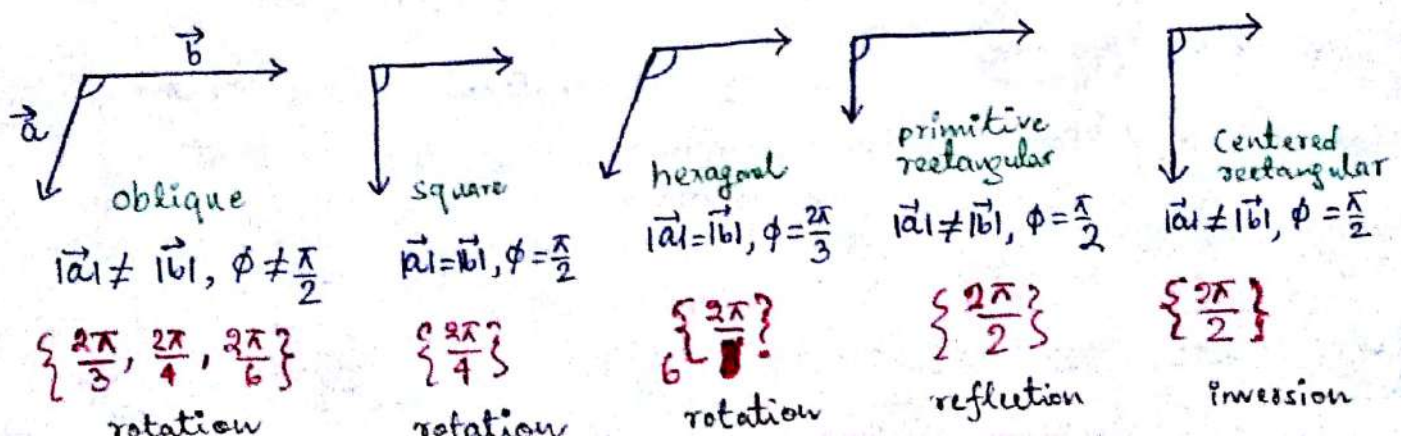 b⃗
a⃗
oblique
|a⃗| ≠ |b⃗|, ϕ ≠ π/2
{2π/3, 2π/4, 2π/6}
rotation
square
|a⃗| = |b⃗|, ϕ = π/2
{2π/4}
rotation
hexagonal
|a⃗| = |b⃗|, ϕ = 2π/3
6 {2π/ }
rotation
primitive
rectangular
|a⃗| ≠ |b⃗|, ϕ = π/2
{2π/2}
reflection
Centered
rectangular
|a⃗| ≠ |b⃗|, ϕ = π/2
{2π/2}
inversion